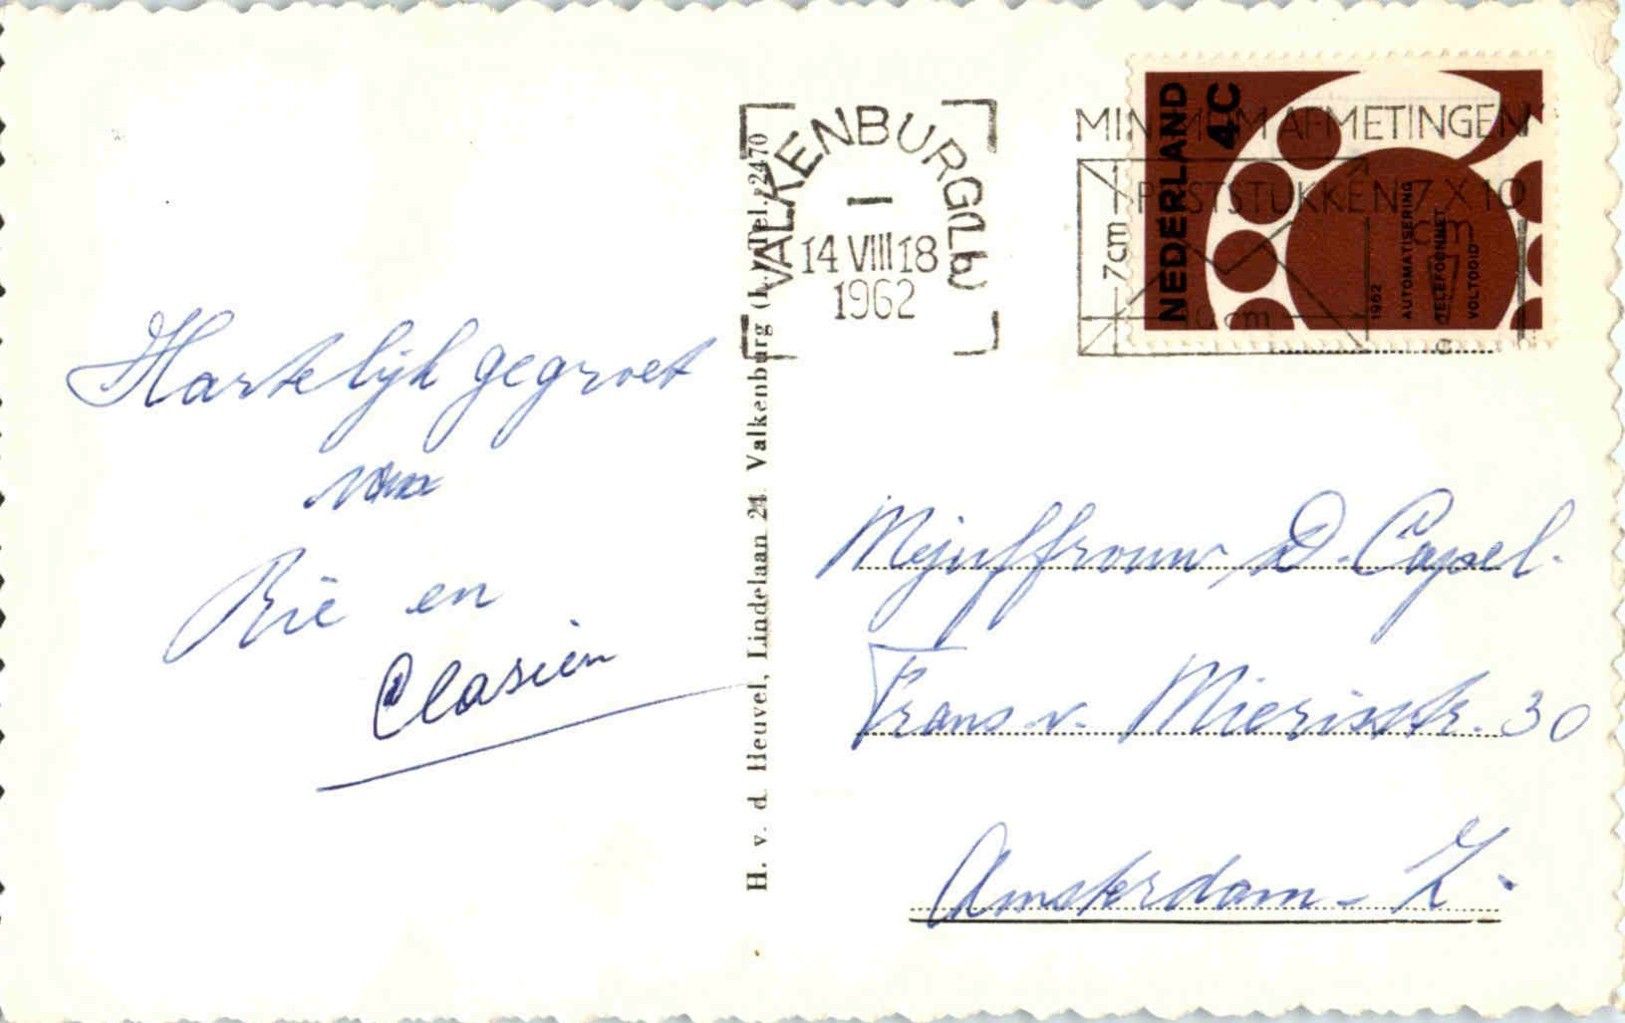 Hartelijk gegroet
van
Rië en
Clasien
H. v. d Heuvel, Lindelaan 24 Valkenburg (L.) Tel. 2470
VALKENBURG (Lb)
14 VIII 18
1962
MINIMUM AFMETINGEN
POSTSTUKKEN 7 X 10
cm
7cm
10 cm
NEDERLAND
4C
1962
AUTOMATISERING
TELEFOONNET
VOLTOOID
Mejuffrouw D. Capel.
Frans v. Mierisstr. 30
Amsterdam - Z.